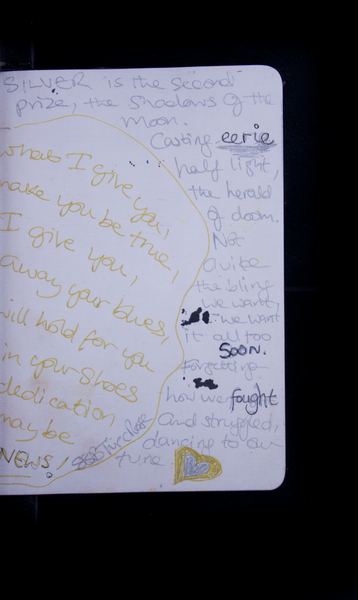 SILVER is the second
prize, the shadows of the
moon.
Casting eerie
half light,
the herald
of doom.
Not
quite
the bling
we want,
we want
it all too
soon.
Forgetting
how we fought
and struggled,
dancing to our
tune.
what I give you,
make you be true,
I give you,
away your blues,
will hold for you
in your shoes
dedication
maybe
NEWS!